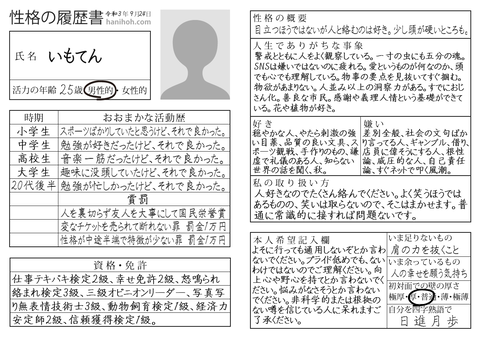 性格の履歴書
令和3年 9月24日
hanihoh.com
氏名 いもてん
活力の年齢 25歳 男性的・女性的
時期 おおまかな活動歴
小学生 スポーツばかりしていたと思うけど、それで良かった。
中学生 勉強が好きだったけど、それで良かった。
高校生 音楽一筋だったけど、それで良かった。
大学生 趣味に没頭していたけど、それで良かった。
20代後半 勉強が忙しかったけど、それで良かった。
賞罰
人を裏切らず友人を大事にして国民栄誉賞
変なチケットを売られて断れない罪 罰金1万円
性格が中途半端で特徴が少ない罪 罰金1万円
資格・免許
仕事テキパキ検定2級、幸せ免許2級、怒鳴られ
絡まれ検定3級、三級オピニオンリーダー、写真写
り無表情技術士3級、動物飼育検定1級、経済力
安定師2級、信頼獲得検定1級。
性格の概要
目立つほうではないが人と絡むのは好き。少し頭が硬いところも。
人生でありがちな事象
警戒とともに人をよく観察している。一寸の虫にも五分の魂。
SNSは嫌いではないのに疲れる。愛というものが何なのか、頭
でも心でも理解している。物事の要点を見抜いてすぐ掴む。
物欲があまりない。人並み以上の洞察力がある。すでにおじ
さん化。善良な市民。感謝や義理人情という基礎ができて
いる。花や植物が好き。
好き
穏やかな人、やたら刺激の強
い目薬、品質の良い文具、ス
ポーツ観戦、手作りのもの、謙
虚で礼儀のある人、知らない
世界の話を聞く、秋。
嫌い
差別全般、社会の文句ばか
り言ってる人、ギャンブル、借り、
店員に偉そうにする人、根性
論、威圧的な人、自己責任
論、すぐネットで叩く風潮。
私の取り扱い方
人好きなのでたくさん絡んでください。よく笑うほうでは
あるものの、笑いは取らないので、そこはまかせます。普
通に常識的に接すれば問題ないです。
本人希望記入欄
よそに行っても通用しないぞとか言わ
ないでください。プライド低めでも、ない
わけではないのでご理解ください。向
上心や野心を持てとか言わないでく
ださい。悩みがなさそうとか言わない
でください。非科学的または根拠の
ない噂を信じている人に呆れますご
了承ください。
いま足りないもの
肩の力を抜くこと
いま余っているもの
人の幸せを願う気持ち
初対面での壁の厚さ
極厚・厚・普通・薄・極薄
自分を四字熟語で
日進月歩